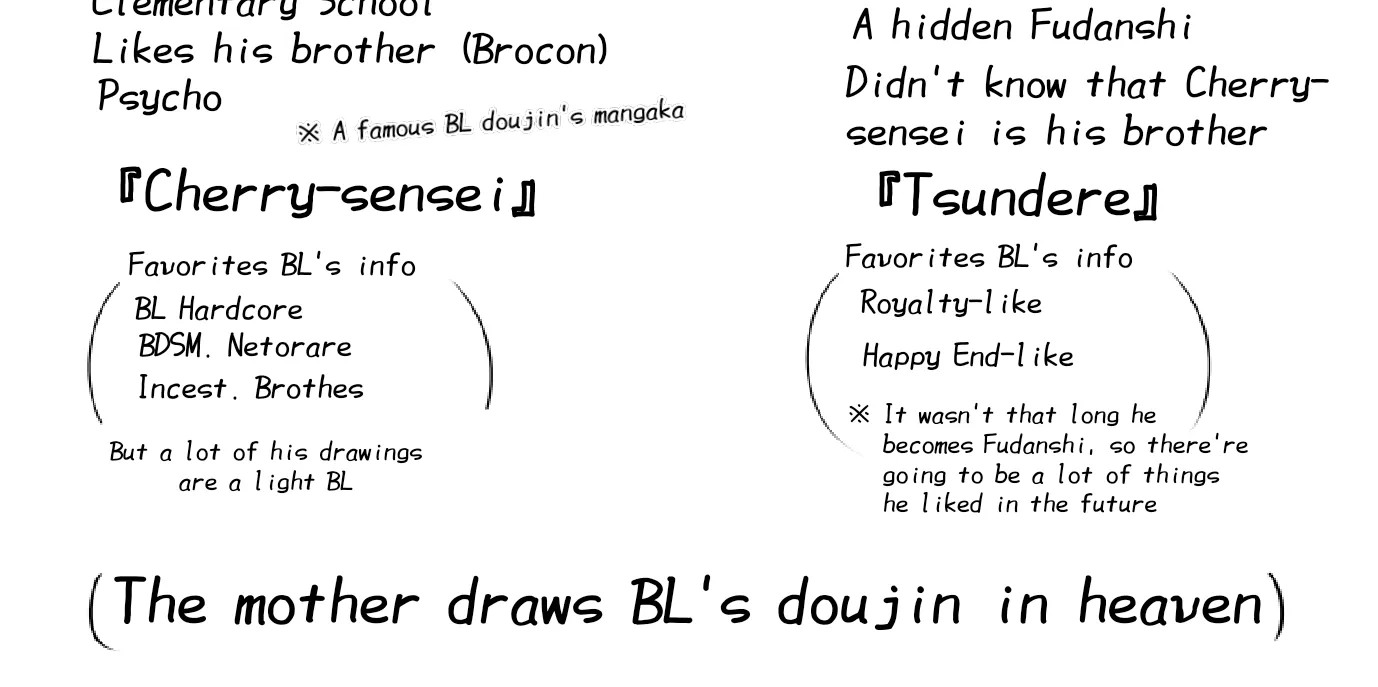 Elementary School
Likes his brother (Brocon)
Psycho
※ A famous BL doujin's mangaka
『Cherry-sensei』
Favorites BL's info
BL Hardcore
BDSM. Netorare
Incest. Brothes
But a lot of his drawings
are a light BL
A hidden Fudanshi
Didn't know that Cherry-
sensei is his brother
『Tsundere』
Favorites BL's info
Royalty-like
Happy End-like
※ It wasn't that long he
becomes Fudanshi, so there're
going to be a lot of things
he liked in the future
(The mother draws BL's doujin in heaven)